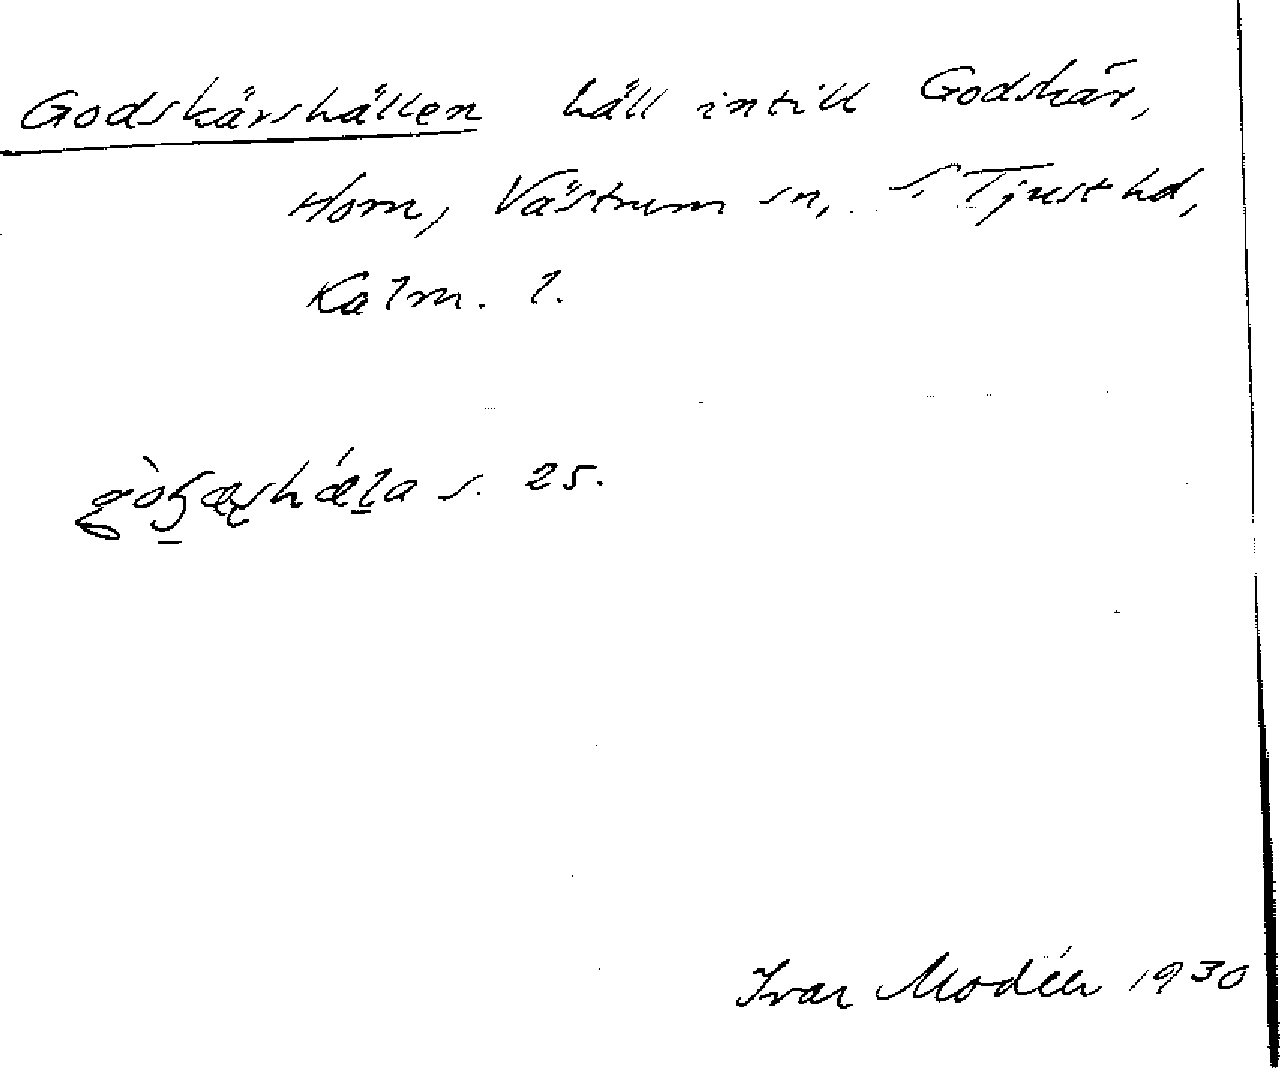 Godskärshällen häll intill Godskär,
Horn, Västrum sn, S Tjust hd,
Kalm. l.
s. 25.
Ivar Modéer 1930